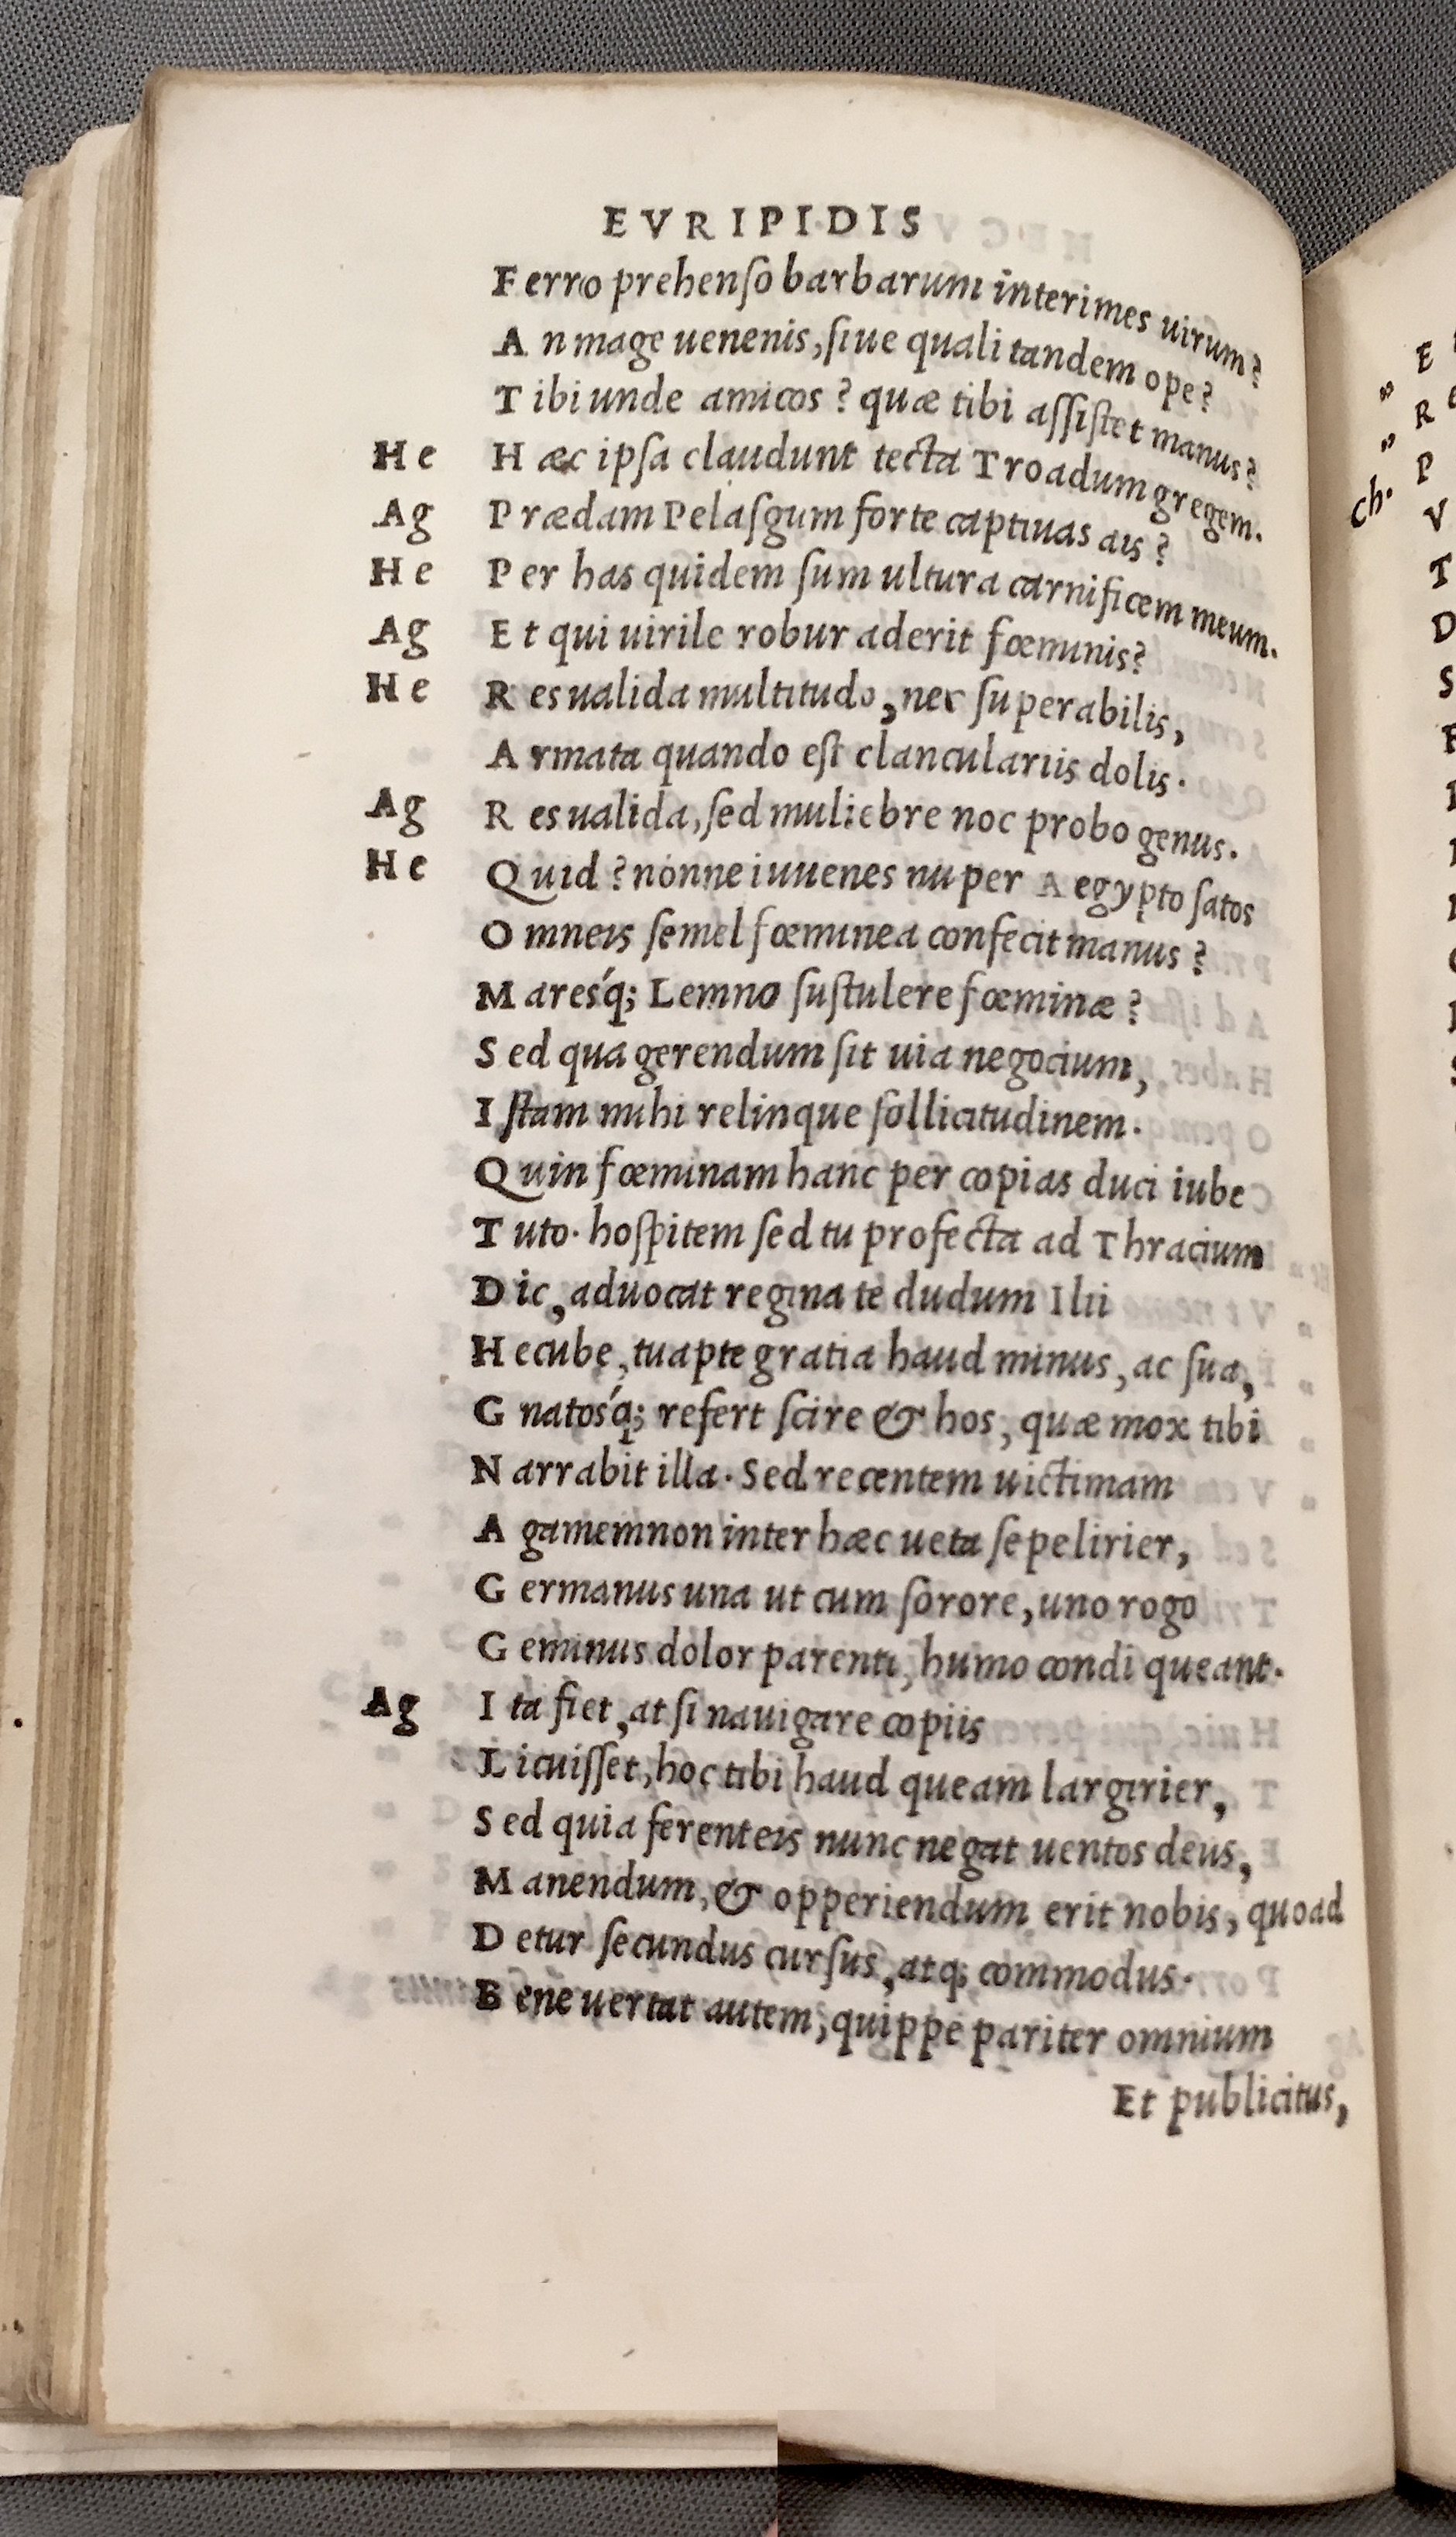 EVRIPIDIS
Ferro prehenſo barbarum interimes uirum?
An mage uenenis, ſiue quali tandem ope?
Tibi unde amicos? quæ tibi aſſiſtet manus?
He Hæc ipſa claudunt tecta Troadum gregem.
Ag Prædam Pelaſgum forte captiuas ais?
He Per has quidem ſum ultura carnificem meum.
Ag Et qui uirile robur aderit fœminis?
He Res ualida multitudo, nec ſuperabilis,
Armata quando eſt clanculariis dolis.
Ag Res ualida, ſed muliebre noc probo genus.
He Quid? nonne iuuenes nuper Aegypto ſatos
Omneis ſemel fœminea confecit manus?
Mareśq; Lemno ſuſtulere fœminæ?
Sed qua gerendum ſit uia negocium,
Iſtam mihi relinque ſollicitudinem.
Quin fœminam hanc per copias duci iube
Tuto. hoſpitem ſed tu profecta ad Thracium
Dic, aduocat regina te dudum Ilii
Hecube, tuapte gratia haud minus, ac ſua,
Gnatośq; refert ſcire & hos, quæ mox tibi
Narrabit illa. Sed recentem uictimam
Agamemnon inter hæc ueta ſepelirier,
Germanus una ut cum ſorore, uno rogo
Geminus dolor parenti, humo condi queant.
Ag Ita fiet, at ſi nauigare copiis
Licuiſſet, hoc tibi haud queam largirier,
Sed quia ferenteis nunc negat uentos deus,
Manendum, & opperiendum erit nobis, quoad
Detur ſecundus curſus, atq; commodus.
Bene uertat autem, quippe pariter omnium
Et publicitus,
E
„ R
„ P
ch. V
T
D
S